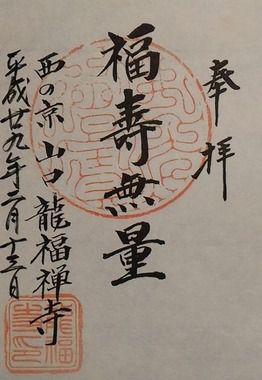 奉拝
福壽無量
西の京 山口 龍福禅寺
平成廿九年二月十三日